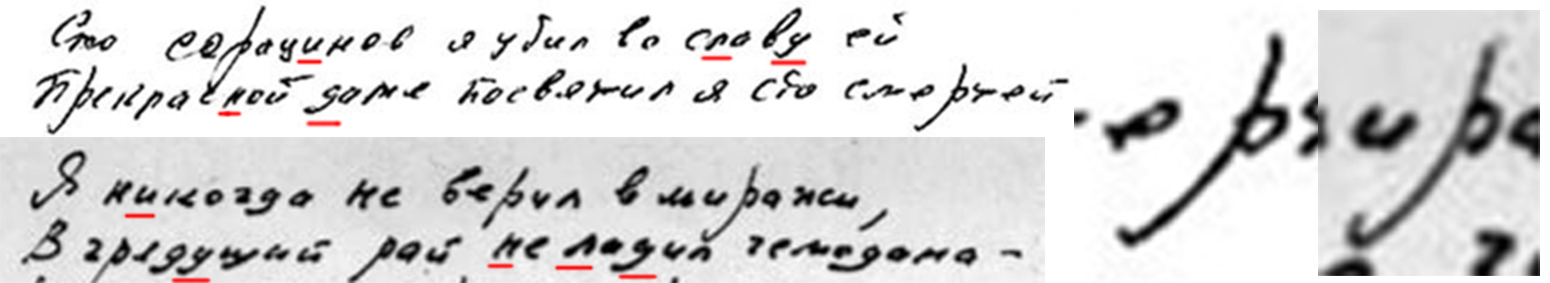 Сто сарацинов я убил во славу ей
Прекрасной даме посвятил я сто смертей
Я никогда не верил в миражи,
В грядущий рай не ладил чемодана -